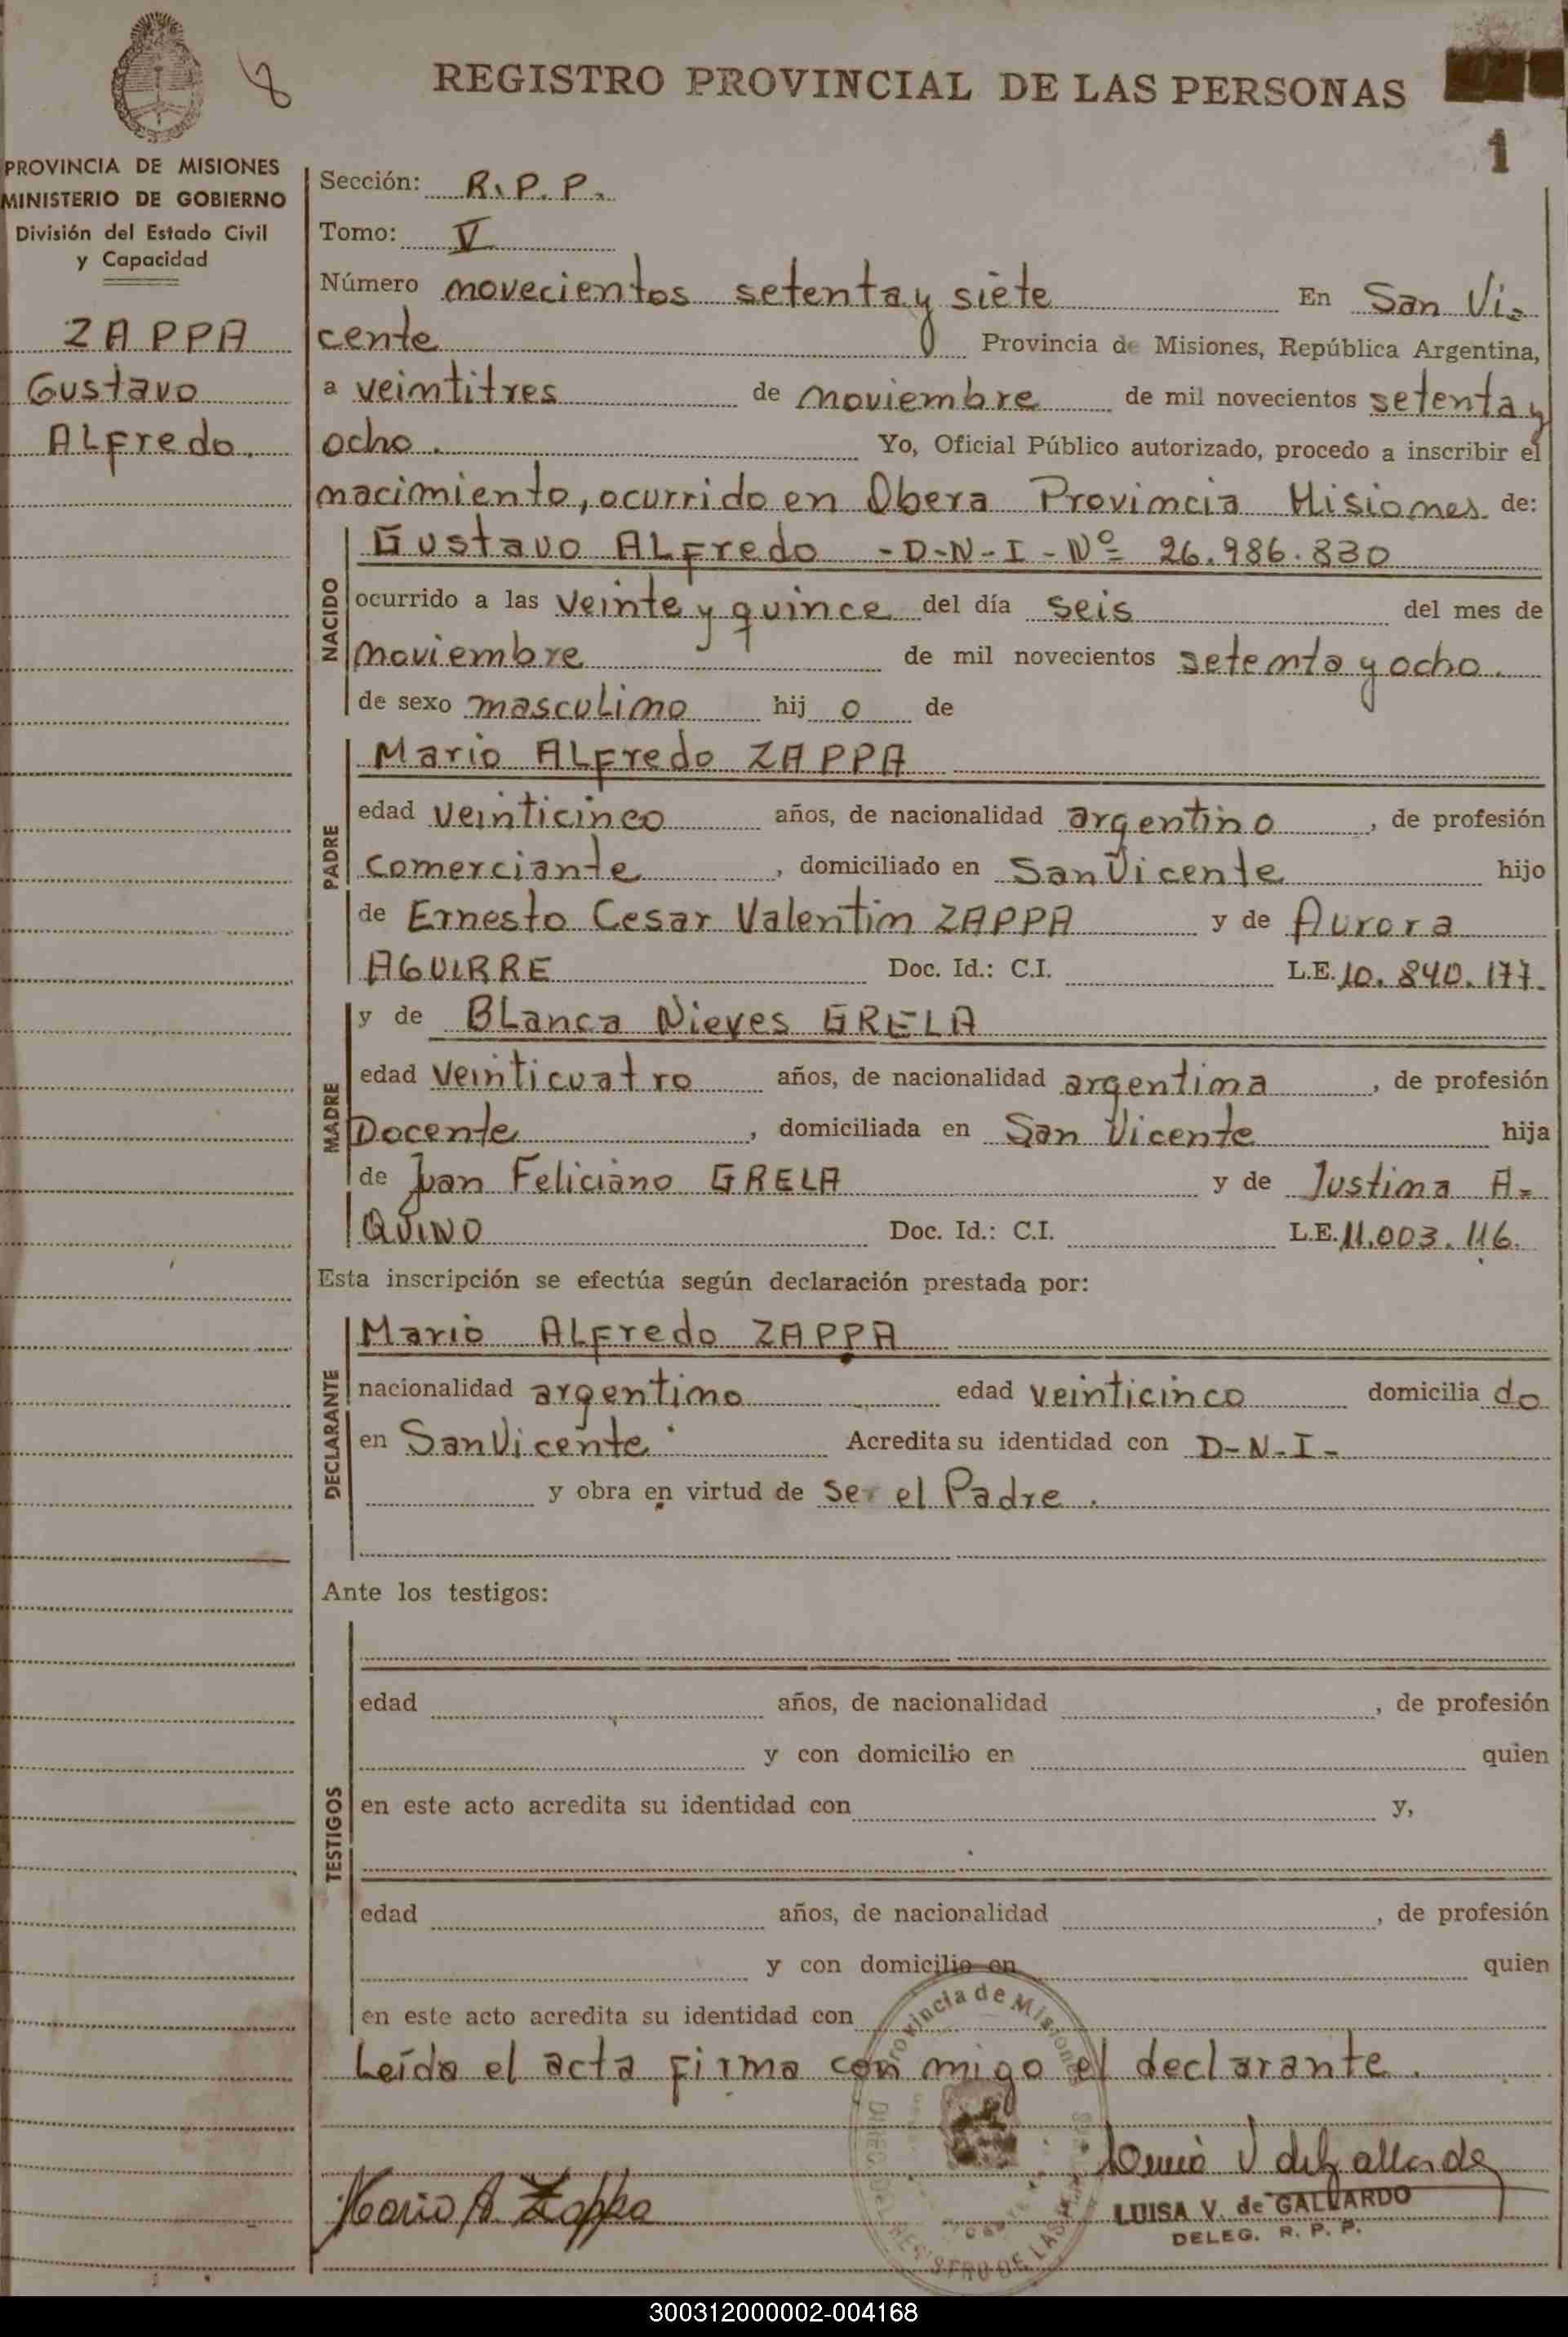 REGISTRO PROVINCIAL DE LAS PERSONAS
1
8
PROVINCIA DE MISIONES
MINISTERIO DE GOBIERNO
División del Estado Civil
y Capacidad
ZAPPA
Gustavo
Alfredo.
Sección: R.P.P.
Tomo: V
Número novecientos setenta y siete En San Vi=
cente Provincia de Misiones, República Argentina,
a veintitres de noviembre de mil novecientos setenta y
ocho. Yo, Oficial Público autorizado, procedo a inscribir el
nacimiento, ocurrido en Obera Provincia Misiones de:
NACIDO
Gustavo Alfredo -D-N-I-Nº 26.986.830
ocurrido a las veinte y quince del día seis del mes de
noviembre de mil novecientos setenta y ocho.
de sexo masculino hijo de
PADRE
Mario Alfredo ZAPPA
edad veinticinco años, de nacionalidad argentino, de profesión
comerciante, domiciliado en San Vicente hijo
de Ernesto Cesar Valentin ZAPPA y de Aurora
AGUIRRE Doc. Id.: C.I. L.E. 10.840.177.
MADRE
y de Blanca Nieves GRELA
edad veinticuatro años, de nacionalidad argentina, de profesión
Docente, domiciliada en San Vicente hija
de Juan Feliciano GRELA y de Justina A=
QUINO Doc. Id.: C.I. L.E. 11.003.116.
Esta inscripción se efectúa según declaración prestada por:
DECLARANTE
Mario Alfredo ZAPPA
nacionalidad argentino edad veinticinco domiciliado
en San Vicente Acredita su identidad con D-N-I-
y obra en virtud de ser el Padre.
Ante los testigos:
TESTIGOS
edad años, de nacionalidad , de profesión
y con domicilio en quien
en este acto acredita su identidad con y,
edad años, de nacionalidad , de profesión
y con domicilio en quien
en este acto acredita su identidad con
Leída el acta firma con migo el declarante.
Provincia de Misiones
REGISTRO DE LAS
Mario A. Zappa
Luisa V de Gallardo
LUISA V. de GALLARDO
DELEG. R. P. P.
300312000002-004168